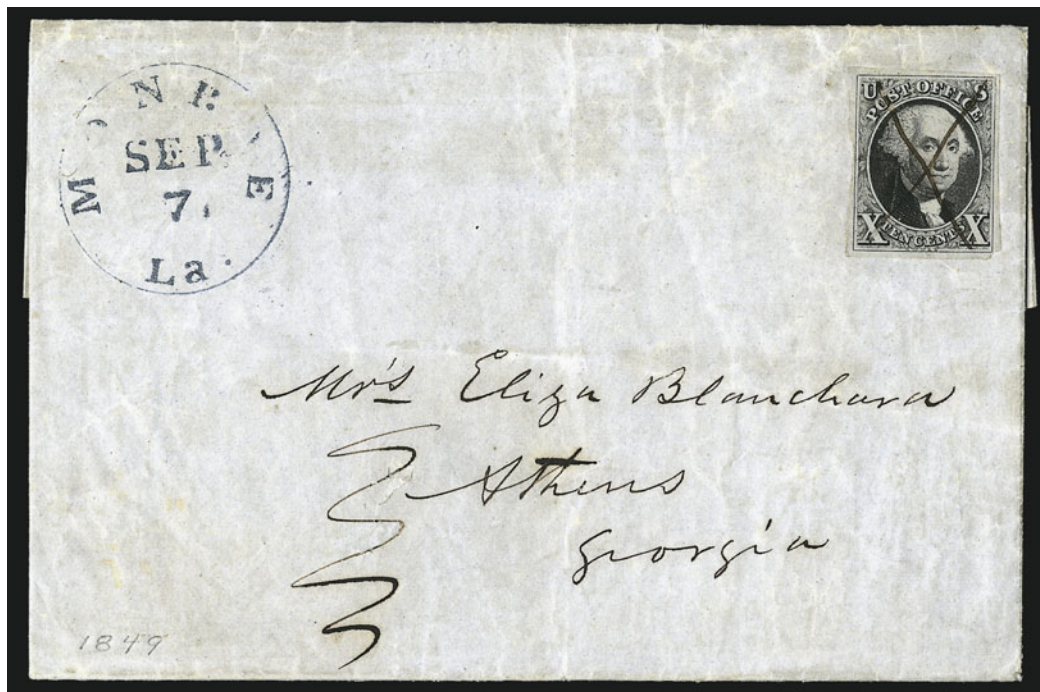 MONROE
SEP
7
La.
U S
POST OFFICE
X TEN CENTS X
Mrs Eliza Blanchard
Athens
Georgia
1849